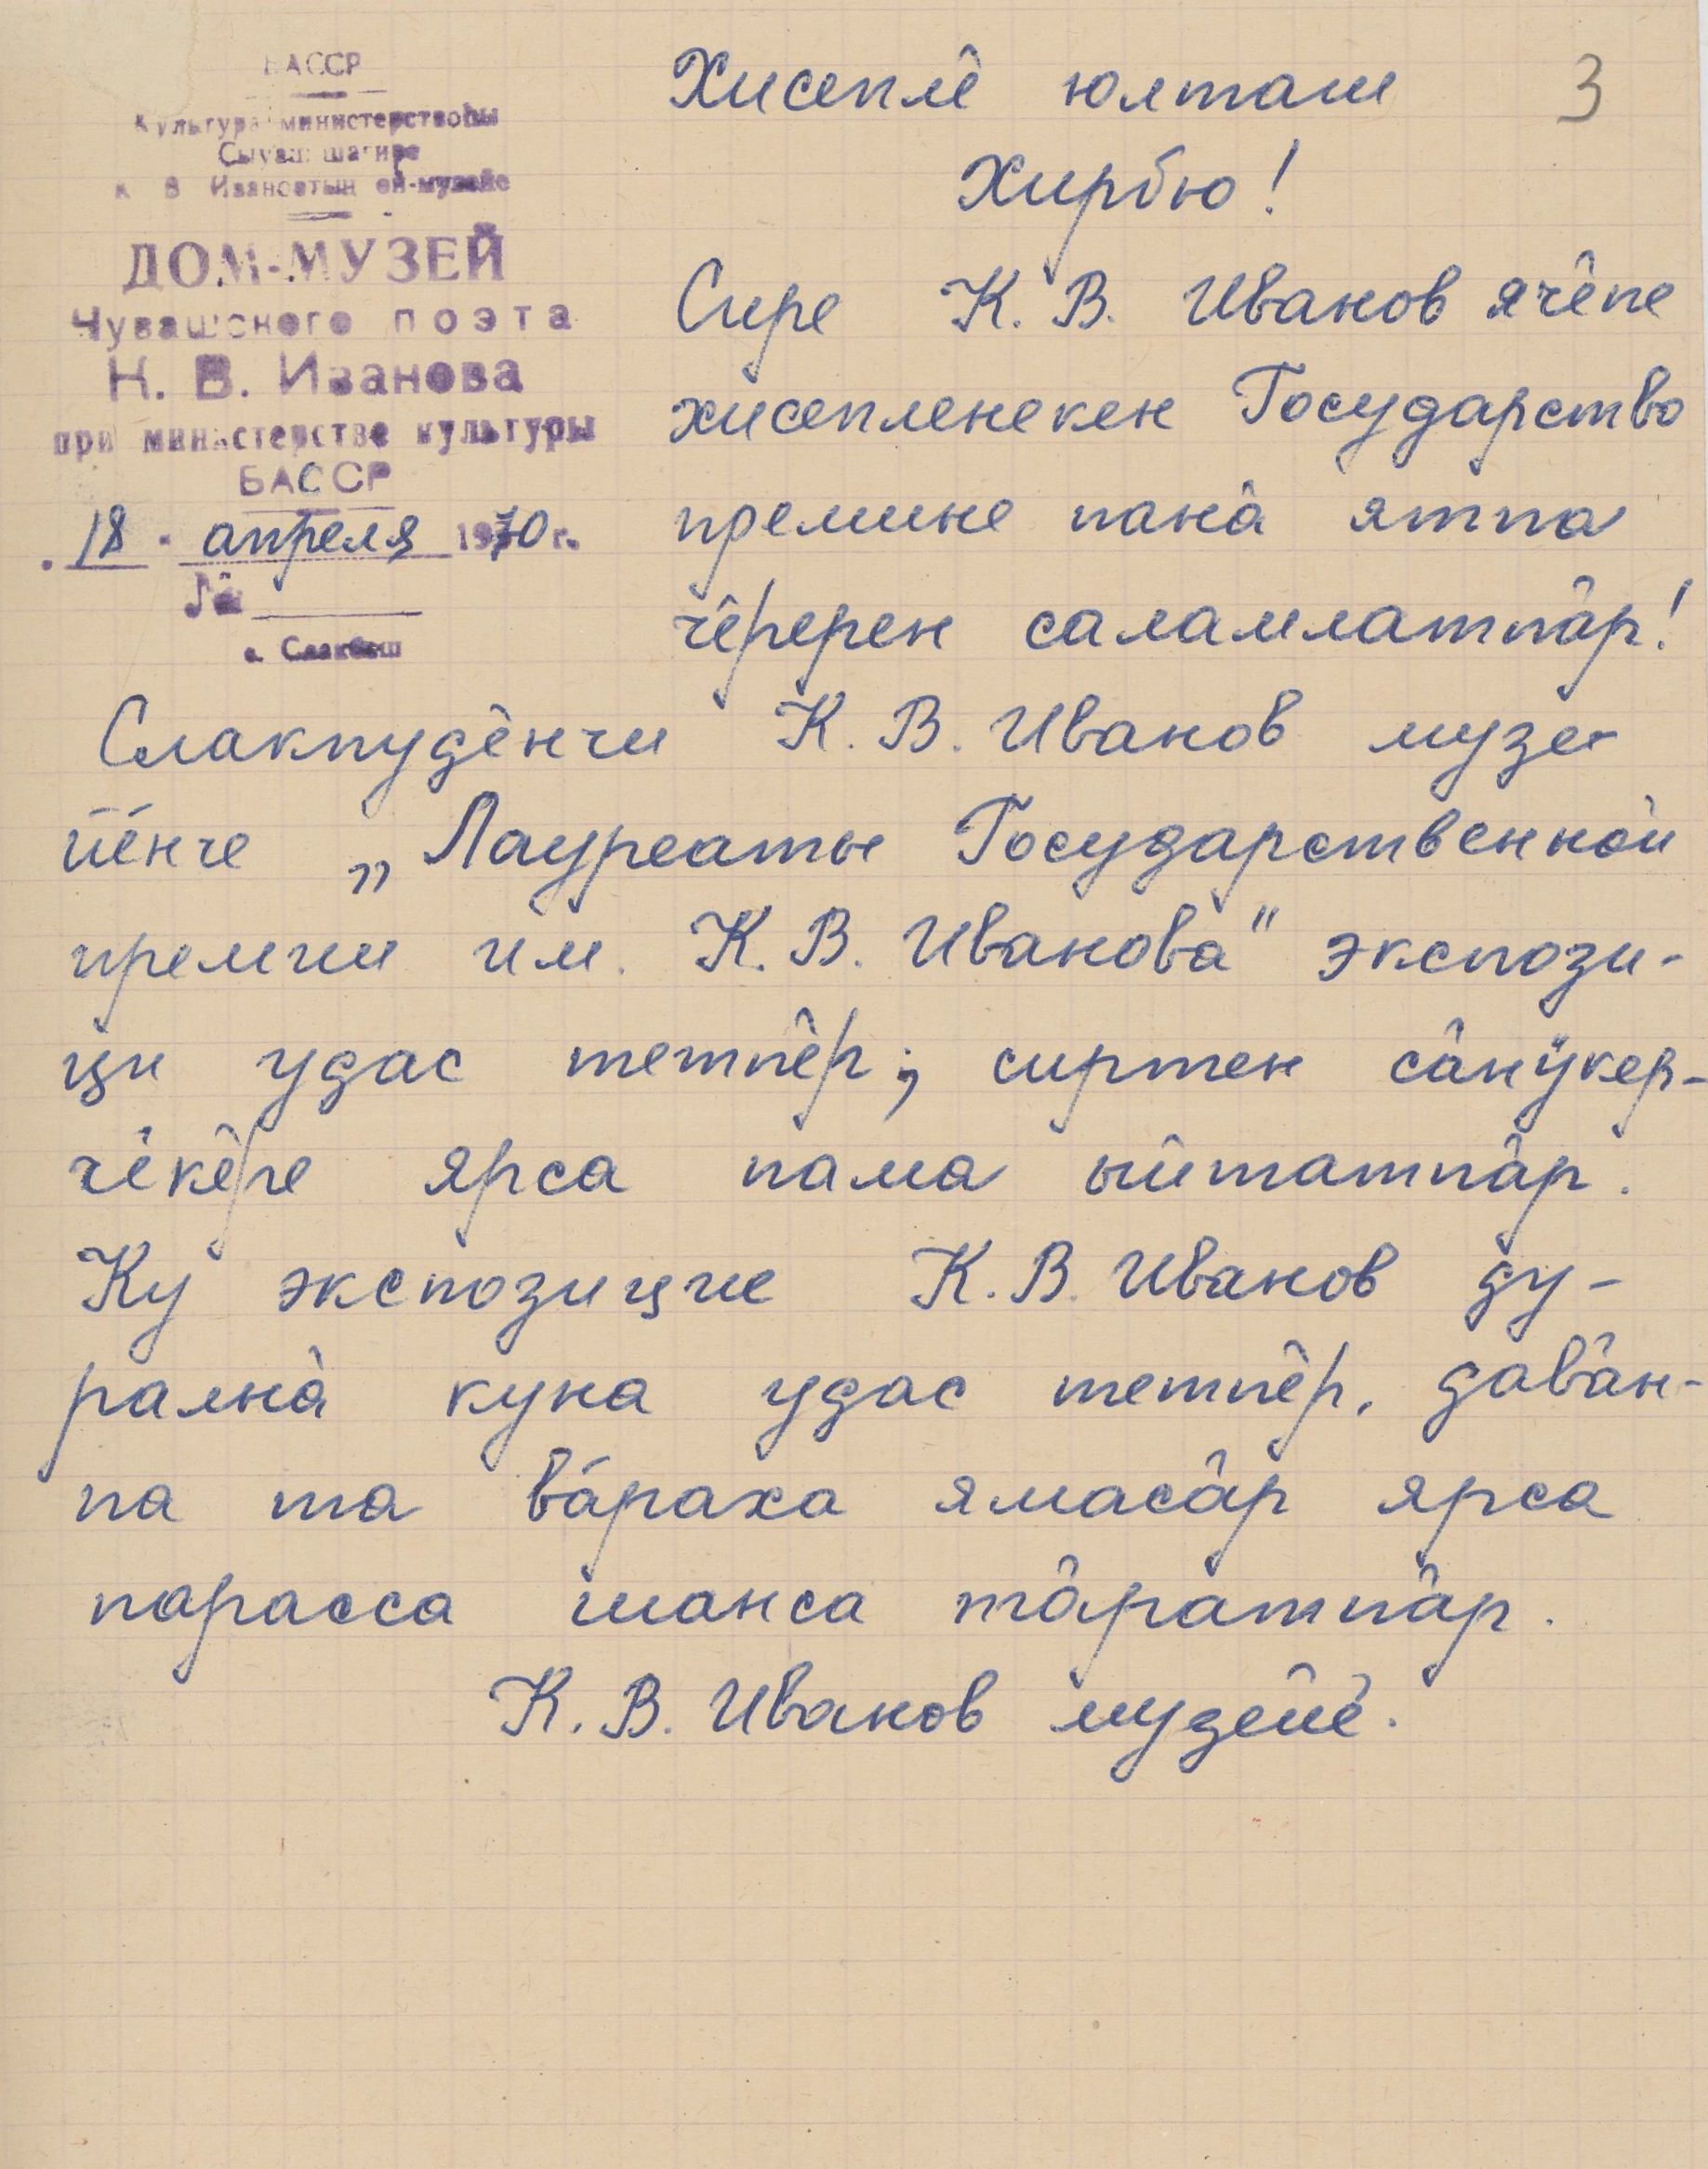 БАССР
Культура министерствоһы
Сыуаш шагире
К В Ивановтың өй-музейе
ДОМ-МУЗЕЙ
Чувашского поэта
К. В. Иванова
при министерстве культуры
БАССР
18 апреля 1970 г.
№
с. Слакбаш
3
Хисеплĕ юлташ
Хирбю!
Сире К. В. Иванов ячĕпе
хисепленекен Государство
премине панă ятпа
чĕререн саламлатпăр!
Слакпуçĕнчи К. В. Иванов музе-
йĕнче „Лауреаты Государственной
премии им. К. В. Иванова" экспози-
ци уçас тетпĕр; сиртен сăнÿкер-
чĕкĕре ярса пама ыйтатпăр.
Ку экспозицие К. В. Иванов çу-
ралнă куна уçас тетпĕр, çавăн-
па та вăраха ямасăр ярса
парасса шанса тăратпăр.
К. В. Иванов музейĕ.